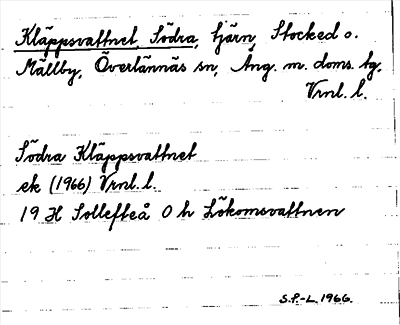 Kläppsvattnet, Södra, tjärn, Stocked o.
Mällby, Överlännäs sn, Ång. m. doms. tg.
Vrnl. l.
Södra Kläppsvattnet
ek (1966) Vrnl. l.
19 H Sollefteå 0 h Lökomsvattnen
S.P.-L. 1966.